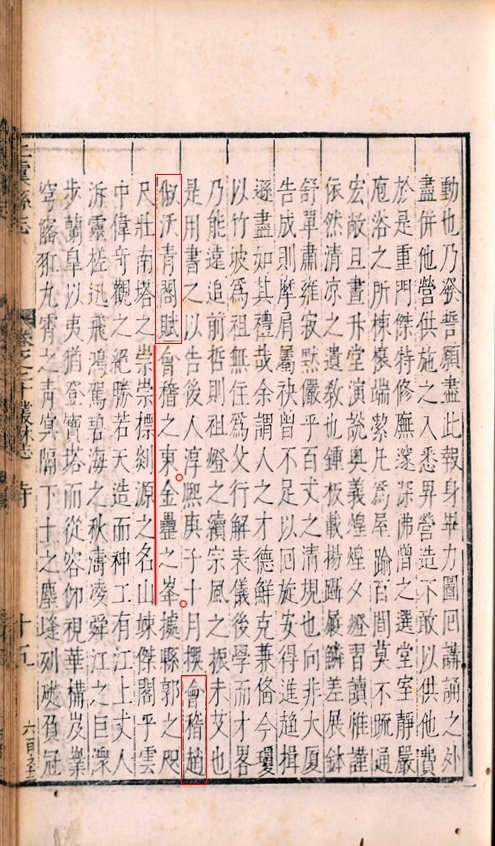 動也乃發誓願盡此報身畢力圖回講誦之外
盡併他營供施之入悉畀營造不敢以供他費
於是重門傑特修廡邃深佛僧之選堂室靜嚴
庖浴之所棟榱端絜凡為屋踰百間莫不疏通
宏敞旦晝升堂演說奧義煌煌夕燈習讀惟謹
依然清凉之遺敎也鍾板載揚躡屨鱗差展鉢
舒單肅雍寂默儼乎百丈之清規也向非大厦
告成則摩肩屬袂曾不足以回旋安得進趨揖
遜盡如其禮哉余謂人之才德鮮克兼俻今瓊
以竹坡為祖無住為父行解表儀後學而才畧
乃能遠追前哲則祖燈之續宗風之振未艾也
是用書之以告後人淳熙庚子十月撰會稽趙
俶沃青閣賦會稽之東金罍之峯據縣郭之咫
尺壯南塔之崇崇標剡源之名山竦傑閣乎雲
中偉奇觀之絕勝若天造而神工有江上丈人
泝靈槎迅飛鴻駕碧海之秋濤凌舜江之巨潀
步蘭臯以夷猶登寶塔而從容仰視華構岌嶪
穹窿九霄之青冥隔下土之塵列冠
上虞縣志 叢林志 寺 十五